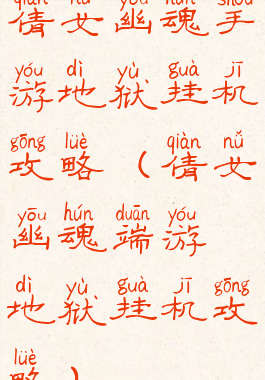 qiàn nǚ yōu hún shǒu
倩女幽魂手
yóu dì yù guà jī
游地狱挂机
gōng lüè qiàn nǚ
攻略（倩女
yōu hún duān yóu
幽魂端游
dì yù guà jī gōng
地狱挂机攻
lüè
略）